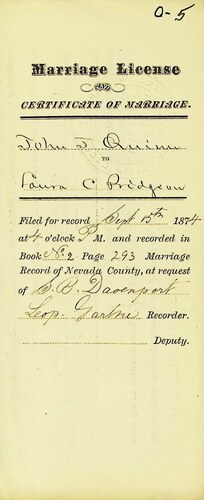 0-5
Marriage License
AND
CERTIFICATE OF MARRIAGE.
John T Quinn
TO
Laura C Pridgeon
Filed for record Sept 15th 1874
at 4 o'clock P M. and recorded in
Book No 2 Page 293 Marriage
Record of Nevada County, at request
of S. B. Davenport
Leop. Garthe Recorder.
Deputy.